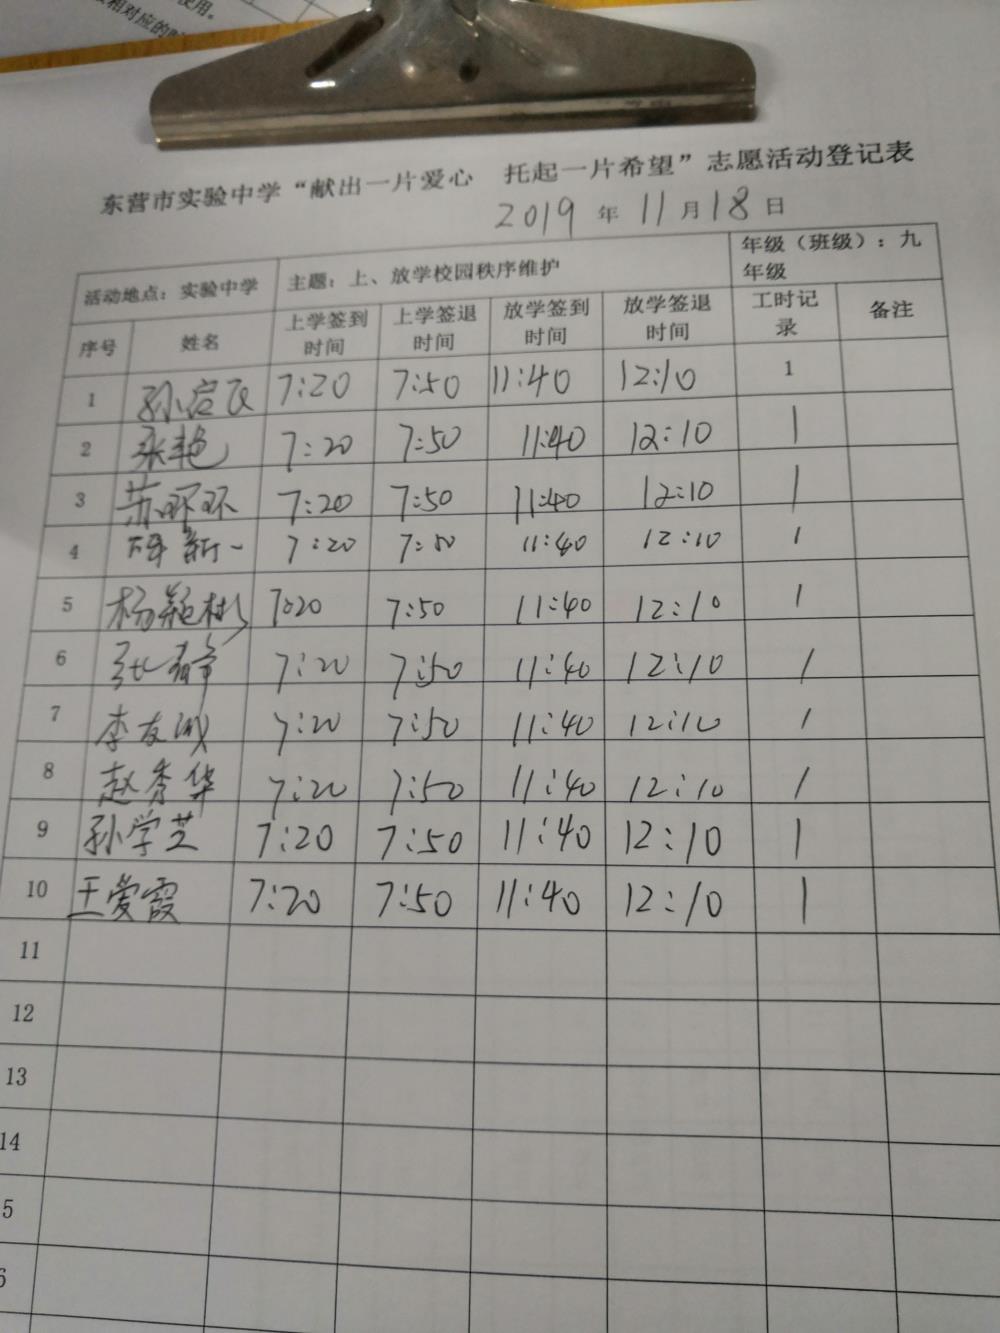 使用。
相对应的时
东营市实验中学“献出一片爱心 托起一片希望”志愿活动登记表
2019 年 11 月 18 日
活动地点：实验中学 主题：上、放学校园秩序维护 年级（班级）：九年级
序号 姓名 上学签到时间 上学签退时间 放学签到时间 放学签退时间 工时记录 备注
1 7:20 7:50 11:40 12:10 1
2 张艳 7:20 7:50 11:40 12:10 1
3 苏环环 7:20 7:50 11:40 12:10 1
4 新一 7:20 7:50 11:40 12:10 1
5 杨颖彬 7:20 7:50 11:40 12:10 1
6 7:20 7:50 11:40 12:10 1
7 李友 7:20 7:50 11:40 12:10 1
8 赵秀华 7:20 7:50 11:40 12:10 1
9 孙学芝 7:20 7:50 11:40 12:10 1
10 王爱霞 7:20 7:50 11:40 12:10 1
11
12
13
14
5
6